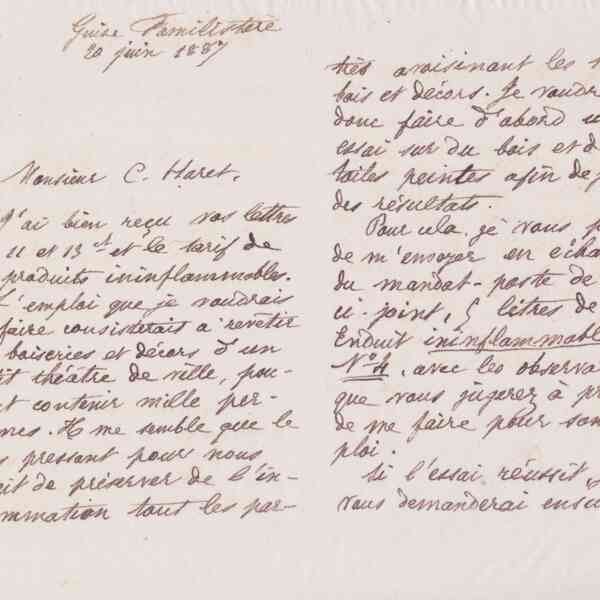 Guise Familistère
20 juin 1887
Monsieur C. Haret.
J'ai bien reçu vos lettres
11 et 13 ct et le tarif de
produits ininflammables.
L'emploi que je voudrais
faire consisterait à revêtir
boiseries et décors d'un
tit théâtre de ville, pou-
t contenir mille per-
nnes. Il me semble que le
s pressant pour nous
ait de préserver de l'in-
mmation tout les par-
ties avoisinant les
bois et décors. Je voudr
donc faire d'abord u
essai sur du bois et d
toiles peintes afin de
des résultats.
Pour cela, je vous p
de m'envoyer en écha
du mandat-poste de
ci-joint, 5 litres de
Enduit ininflammabl
N° 4, avec les observa
que vous jugerez à pr
de me faire pour son
ploi.
Si l'essai réussit, j
vous demanderai ensu